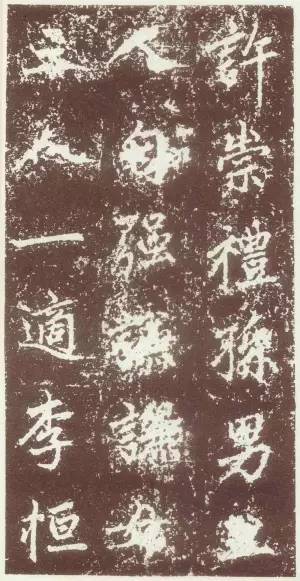 許崇禮孫男五
人自強謙女
人一適李恒